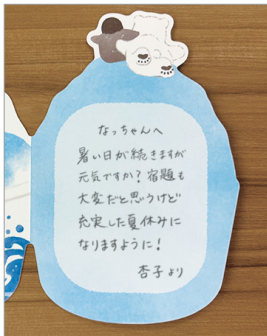 なっちゃんへ
暑い日が続きますが
元気ですか？宿題も
大変だと思うけど
充実した夏休みに
なりますように！
杏子より